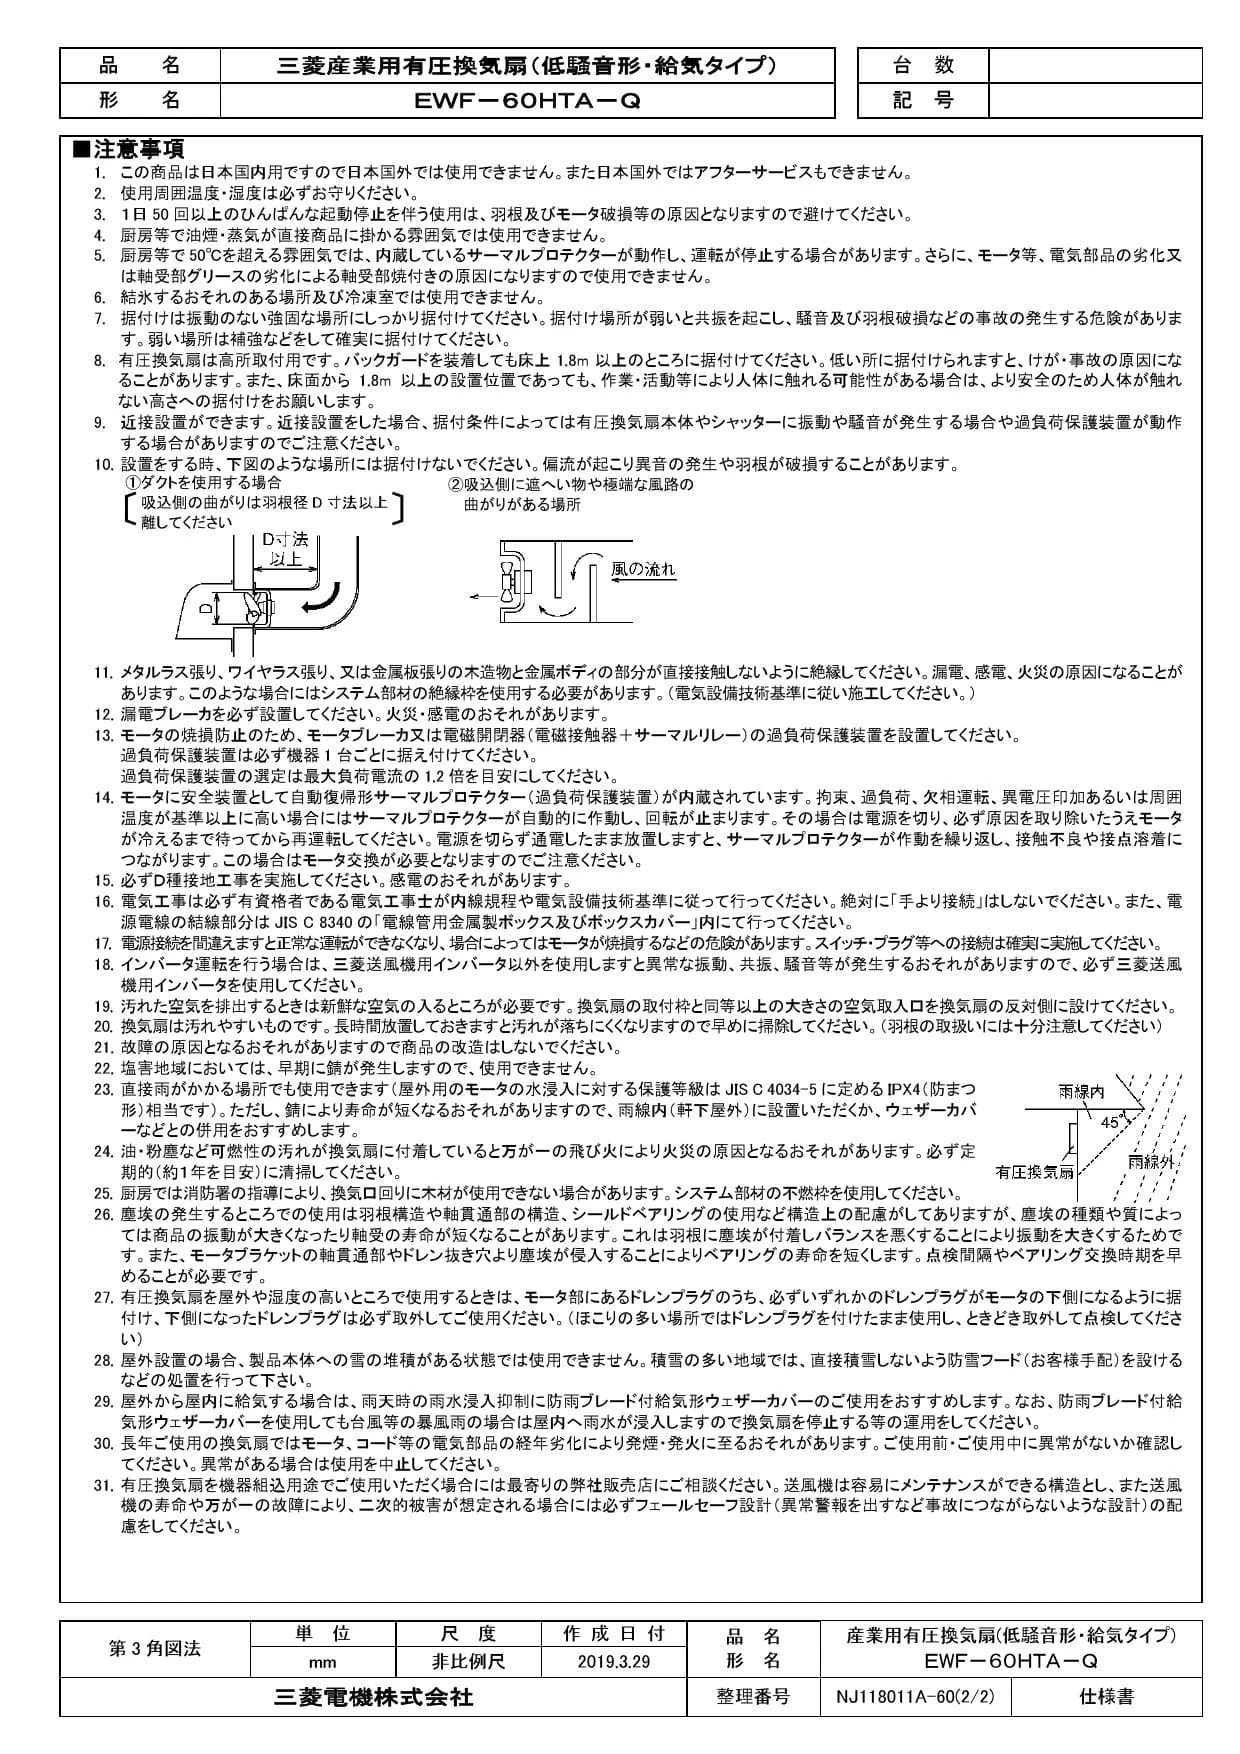 品名 三菱産業用有圧換気扇（低騒音形・給気タイプ） 台数
形名 EWF－60HTA－Q 記号
■注意事項
1. この商品は日本国内用ですので日本国外では使用できません。また日本国外ではアフターサービスもできません。
2. 使用周囲温度・湿度は必ずお守りください。
3. 1日 50 回以上のひんぱんな起動停止を伴う使用は、羽根及びモータ破損等の原因となりますので避けてください。
4. 厨房等で油煙・蒸気が直接商品に掛かる雰囲気では使用できません。
5. 厨房等で 50℃を超える雰囲気では、内蔵しているサーマルプロテクターが動作し、運転が停止する場合があります。さらに、モータ等、電気部品の劣化又
は軸受部グリースの劣化による軸受部焼付きの原因になりますので使用できません。
6. 結氷するおそれのある場所及び冷凍室では使用できません。
7. 据付けは振動のない強固な場所にしっかり据付けてください。据付け場所が弱いと共振を起こし、騒音及び羽根破損などの事故の発生する危険がありま
す。弱い場所は補強などをして確実に据付けてください。
8. 有圧換気扇は高所取付用です。バックガードを装着しても床上 1.8m 以上のところに据付けてください。低い所に据付けられますと、けが・事故の原因にな
ることがあります。また、床面から 1.8m 以上の設置位置であっても、作業・活動等により人体に触れる可能性がある場合は、より安全のため人体が触れ
ない高さへの据付けをお願いします。
9. 近接設置ができます。近接設置をした場合、据付条件によっては有圧換気扇本体やシャッターに振動や騒音が発生する場合や過負荷保護装置が動作
する場合がありますのでご注意ください。
10. 設置をする時、下図のような場所には据付けないでください。偏流が起こり異音の発生や羽根が破損することがあります。
①ダクトを使用する場合
吸込側の曲がりは羽根径 D 寸法以上
離してください
②吸込側に遮へい物や極端な風路の
曲がりがある場所
D寸法
以上
D
風の流れ
11. メタルラス張り、ワイヤラス張り、又は金属板張りの木造物と金属ボディの部分が直接接触しないように絶縁してください。漏電、感電、火災の原因になることが
あります。このような場合にはシステム部材の絶縁枠を使用する必要があります。（電気設備技術基準に従い施工してください。）
12. 漏電ブレーカを必ず設置してください。火災・感電のおそれがあります。
13. モータの焼損防止のため、モータブレーカ又は電磁開閉器（電磁接触器＋サーマルリレー）の過負荷保護装置を設置してください。
過負荷保護装置は必ず機器 1 台ごとに据え付けてください。
過負荷保護装置の選定は最大負荷電流の 1.2 倍を目安にしてください。
14. モータに安全装置として自動復帰形サーマルプロテクター（過負荷保護装置）が内蔵されています。拘束、過負荷、欠相運転、異電圧印加あるいは周囲
温度が基準以上に高い場合にはサーマルプロテクターが自動的に作動し、回転が止まります。その場合は電源を切り、必ず原因を取り除いたうえモータ
が冷えるまで待ってから再運転してください。電源を切らず通電したまま放置しますと、サーマルプロテクターが作動を繰り返し、接触不良や接点溶着に
つながります。この場合はモータ交換が必要となりますのでご注意ください。
15. 必ずD種接地工事を実施してください。感電のおそれがあります。
16. 電気工事は必ず有資格者である電気工事士が内線規程や電気設備技術基準に従って行ってください。絶対に「手より接続」はしないでください。また、電
源電線の結線部分は JIS C 8340 の「電線管用金属製ボックス及びボックスカバー」内にて行ってください。
17. 電源接続を間違えますと正常な運転ができなくなり、場合によってはモータが焼損するなどの危険があります。スイッチ・プラグ等への接続は確実に実施してください。
18. インバータ運転を行う場合は、三菱送風機用インバータ以外を使用しますと異常な振動、共振、騒音等が発生するおそれがありますので、必ず三菱送風
機用インバータを使用してください。
19. 汚れた空気を排出するときは新鮮な空気の入るところが必要です。換気扇の取付枠と同等以上の大きさの空気取入口を換気扇の反対側に設けてください。
20. 換気扇は汚れやすいものです。長時間放置しておきますと汚れが落ちにくくなりますので早めに掃除してください。（羽根の取扱いには十分注意してください）
21. 故障の原因となるおそれがありますので商品の改造はしないでください。
22. 塩害地域においては、早期に錆が発生しますので、使用できません。
23. 直接雨がかかる場所でも使用できます（屋外用のモータの水浸入に対する保護等級は JIS C 4034-5 に定める IPX4（防まつ
形）相当です）。ただし、錆により寿命が短くなるおそれがありますので、雨線内（軒下屋外）に設置いただくか、ウェザーカバ
ーなどとの併用をおすすめします。
24. 油・粉塵など可燃性の汚れが換気扇に付着していると万が一の飛び火により火災の原因となるおそれがあります。必ず定
期的（約1年を目安）に清掃してください。
25. 厨房では消防署の指導により、換気口回りに木材が使用できない場合があります。システム部材の不燃枠を使用してください。
雨線内
45°
雨線外
有圧換気扇
26. 塵埃の発生するところでの使用は羽根構造や軸貫通部の構造、シールドベアリングの使用など構造上の配慮がしてありますが、塵埃の種類や質によっ
ては商品の振動が大きくなったり軸受の寿命が短くなることがあります。これは羽根に塵埃が付着しバランスを悪くすることにより振動を大きくするためで
す。また、モータブラケットの軸貫通部やドレン抜き穴より塵埃が侵入することによりベアリングの寿命を短くします。点検間隔やベアリング交換時期を早
めることが必要です。
27. 有圧換気扇を屋外や湿度の高いところで使用するときは、モータ部にあるドレンプラグのうち、必ずいずれかのドレンプラグがモータの下側になるように据
付け、下側になったドレンプラグは必ず取外してご使用ください。（ほこりの多い場所ではドレンプラグを付けたまま使用し、ときどき取外して点検してくださ
い）
28. 屋外設置の場合、製品本体への雪の堆積がある状態では使用できません。積雪の多い地域では、直接積雪しないよう防雪フード（お客様手配）を設ける
などの処置を行って下さい。
29. 屋外から屋内に給気する場合は、雨天時の雨水浸入抑制に防雨ブレード付給気形ウェザーカバーのご使用をおすすめします。なお、防雨ブレード付給
気形ウェザーカバーを使用しても台風等の暴風雨の場合は屋内へ雨水が浸入しますので換気扇を停止する等の運用をしてください。
30. 長年ご使用の換気扇ではモータ、コード等の電気部品の経年劣化により発煙・発火に至るおそれがあります。ご使用前・ご使用中に異常がないか確認し
てください。異常がある場合は使用を中止してください。
31. 有圧換気扇を機器組込用途でご使用いただく場合には最寄りの弊社販売店にご相談ください。送風機は容易にメンテナンスができる構造とし、また送風
機の寿命や万が一の故障により、二次的被害が想定される場合には必ずフェールセーフ設計（異常警報を出すなど事故につながらないような設計）の配
慮をしてください。
第 3 角図法 単位 尺度 作成日付 品名 産業用有圧換気扇(低騒音形・給気タイプ)
mm 非比例尺 2019.3.29 形名 EWF－60HTA－Q
三菱電機株式会社 整理番号 NJ118011A-60(2/2) 仕様書